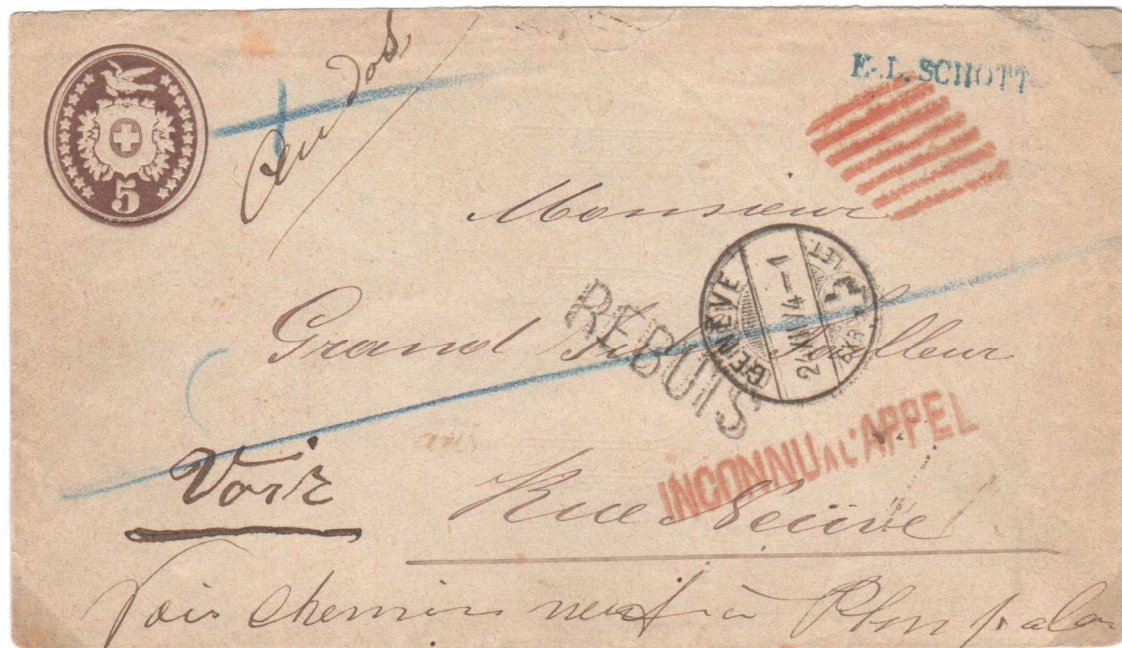 5
au dos
E. L. SCHOTT
Monsieur
GENÈVE
EXP. LET.
REBUTS
Grand Tailleur
INCONNU A L'APPEL
Voir
Rue Neuve
Voir chemin neuf à Plainpalais